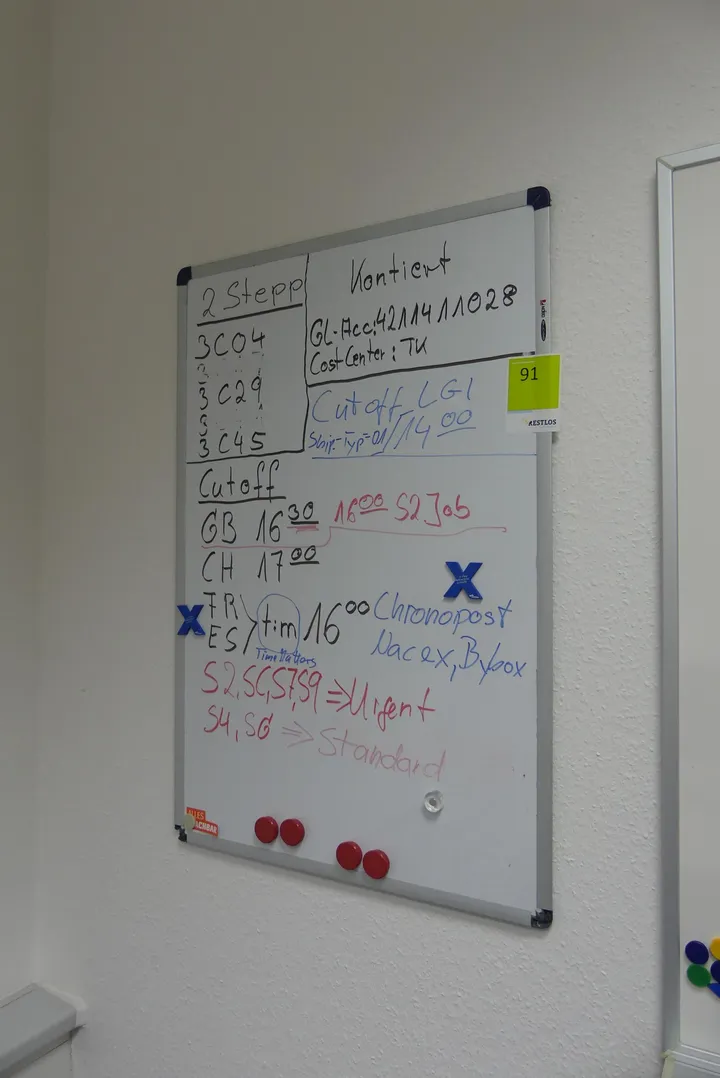 2 Stepp
3C04
3C29
3C45
Kontiert
GL-Acc:4211411028
CostCenter: TK
Cutoff LGI
Ship-Typ-01/14 00
91
RESTLOS
Cutoff
GB 16 30
16 00 S2 Job
CH 17 00
FR
ES
tim 16 00
TimeMatters
Chronopost
Nacex, Bybox
S2, SC, S7, S9 => Urgent
S4, S6 => Standard